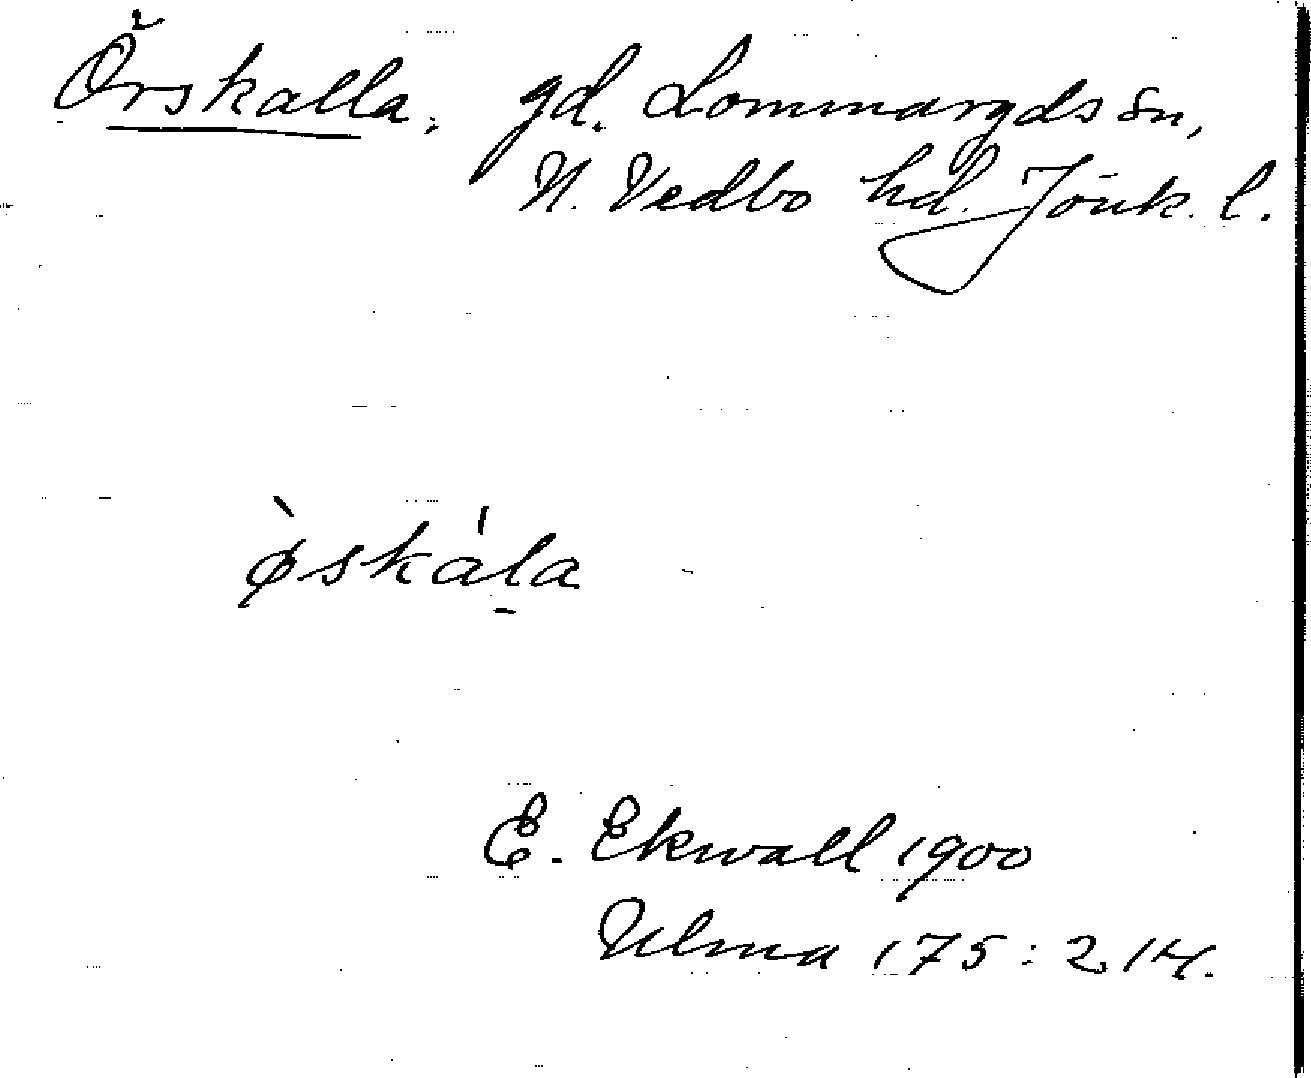 Örskalla, gd. Lommaryds sn,
N. Vedbo hd. Jönk. l.
ø̀skála̱
E. Ekwall 1900
Ulma 175:214.